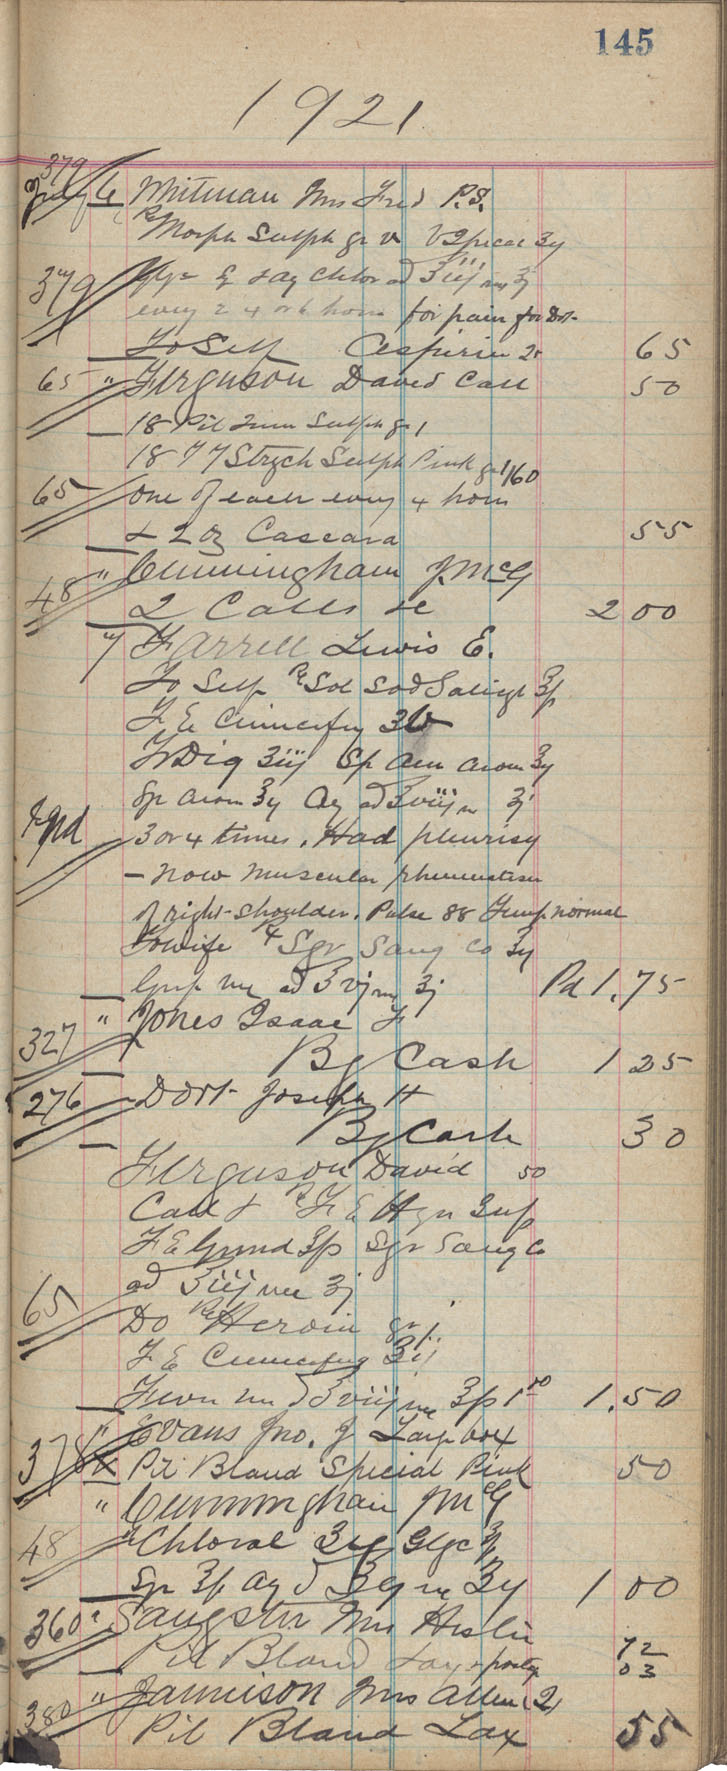 145
1921
379
July 6 Whitman Mrs Fred P.S.
Morph Sulph gr v V Ipecac ʒij
379 & aq Chlor ad ℥iij ʒj
every 2 4 or 6 hours for pain for Dot
To Self Aspirin 65
65 " Ferguson David Call 50
18 Pil Sulph gr 1
18 " " Strych Sulph Pink gr 1/60
65 one of each every 4 hours
& 2 oz Cascara 55
" Cunningham J. McG
48 2 Calls 2 00
7 Farrell Lewis E.
To Self ℞ Sol Sod Salicyl
F E Cimicifug
Tr Dig ʒiij Sp Am Arom ʒij
Sp Arom ʒij Aq ad ℥viij ʒj
3 or 4 times. Had pleurisy
- now muscular rheumatism
of right shoulder. Pulse 88 Temp normal
To wife ℞ Syr Sang Co ʒij
ad ℥vj ʒj Pd 1.75
" Jones Isaac F
327 By Cash 1 25
276 Dort Joseph H
By Cash 30
Ferguson David 50
Call & ℞ F E
F E Grind Syr Sang Co
ad ℥iij ʒj
65 Do ℞ Heroin gr j
F E Cimicifug ʒij
ad ℥viij 1 00 1.50
" Evans Jno. J
378 Pil Blaud Special Pink 50
" Cunningham J McG
48 Chloral Glyc
Syr Aq 1 00
360 " Sangster Mrs
Pil Blaud Lax & postg 72
03
380 " Jamieson Mrs Allen (2)
Pil Blaud Lax 55